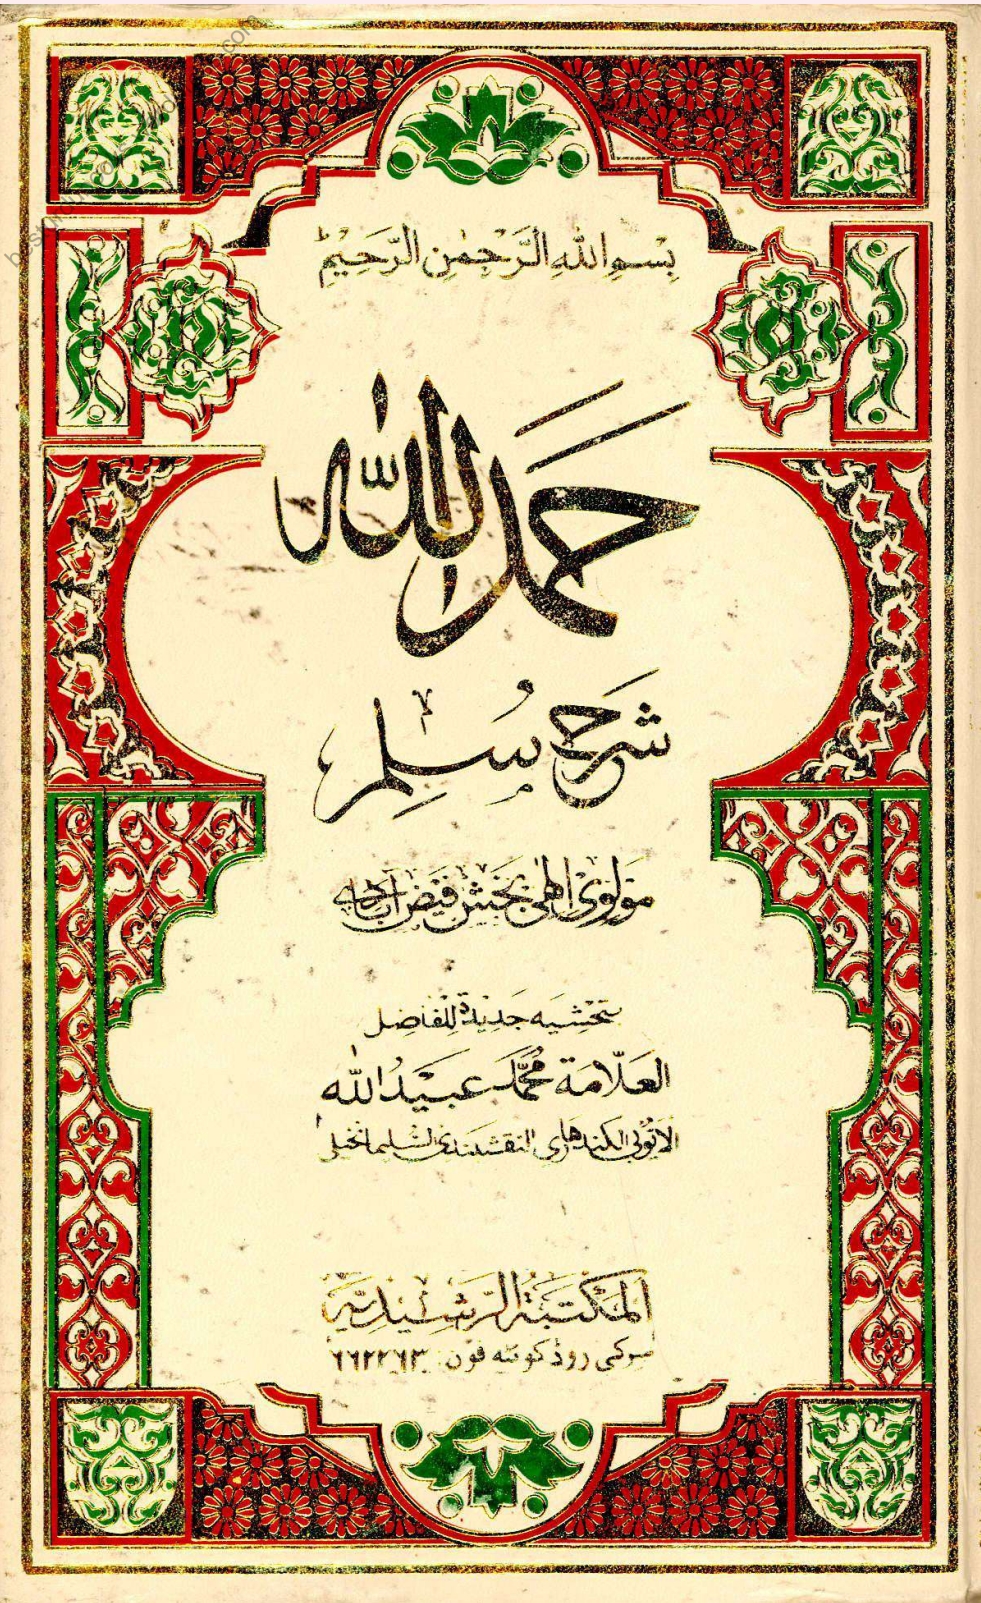 بِسْمِ اللهِ الرَّحْمٰنِ الرَّحِيْمِ ط
حمد الله
شرح سُلم
مولوی الٰهی بخش فیض آبادی
بتحشیه جدیدة للفاضل
العلّامة محمّد عبیدُ الله
الایوبی الکندهاری النقشبندی السلیمانخیل
المکتبة الرشیدیة
سرکی روڈ کوئٹه فون: ۶۶۲۲۶۳